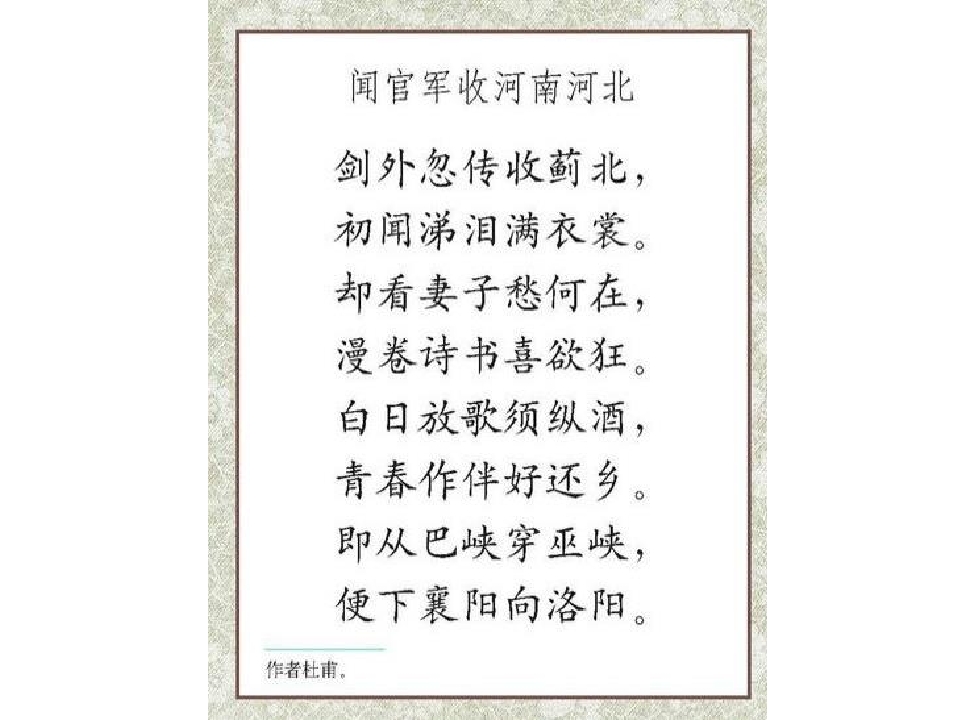 闻官军收河南河北
剑外忽传收蓟北，
初闻涕泪满衣裳。
却看妻子愁何在，
漫卷诗书喜欲狂。
白日放歌须纵酒，
青春作伴好还乡。
即从巴峡穿巫峡，
便下襄阳向洛阳。
作者杜甫。